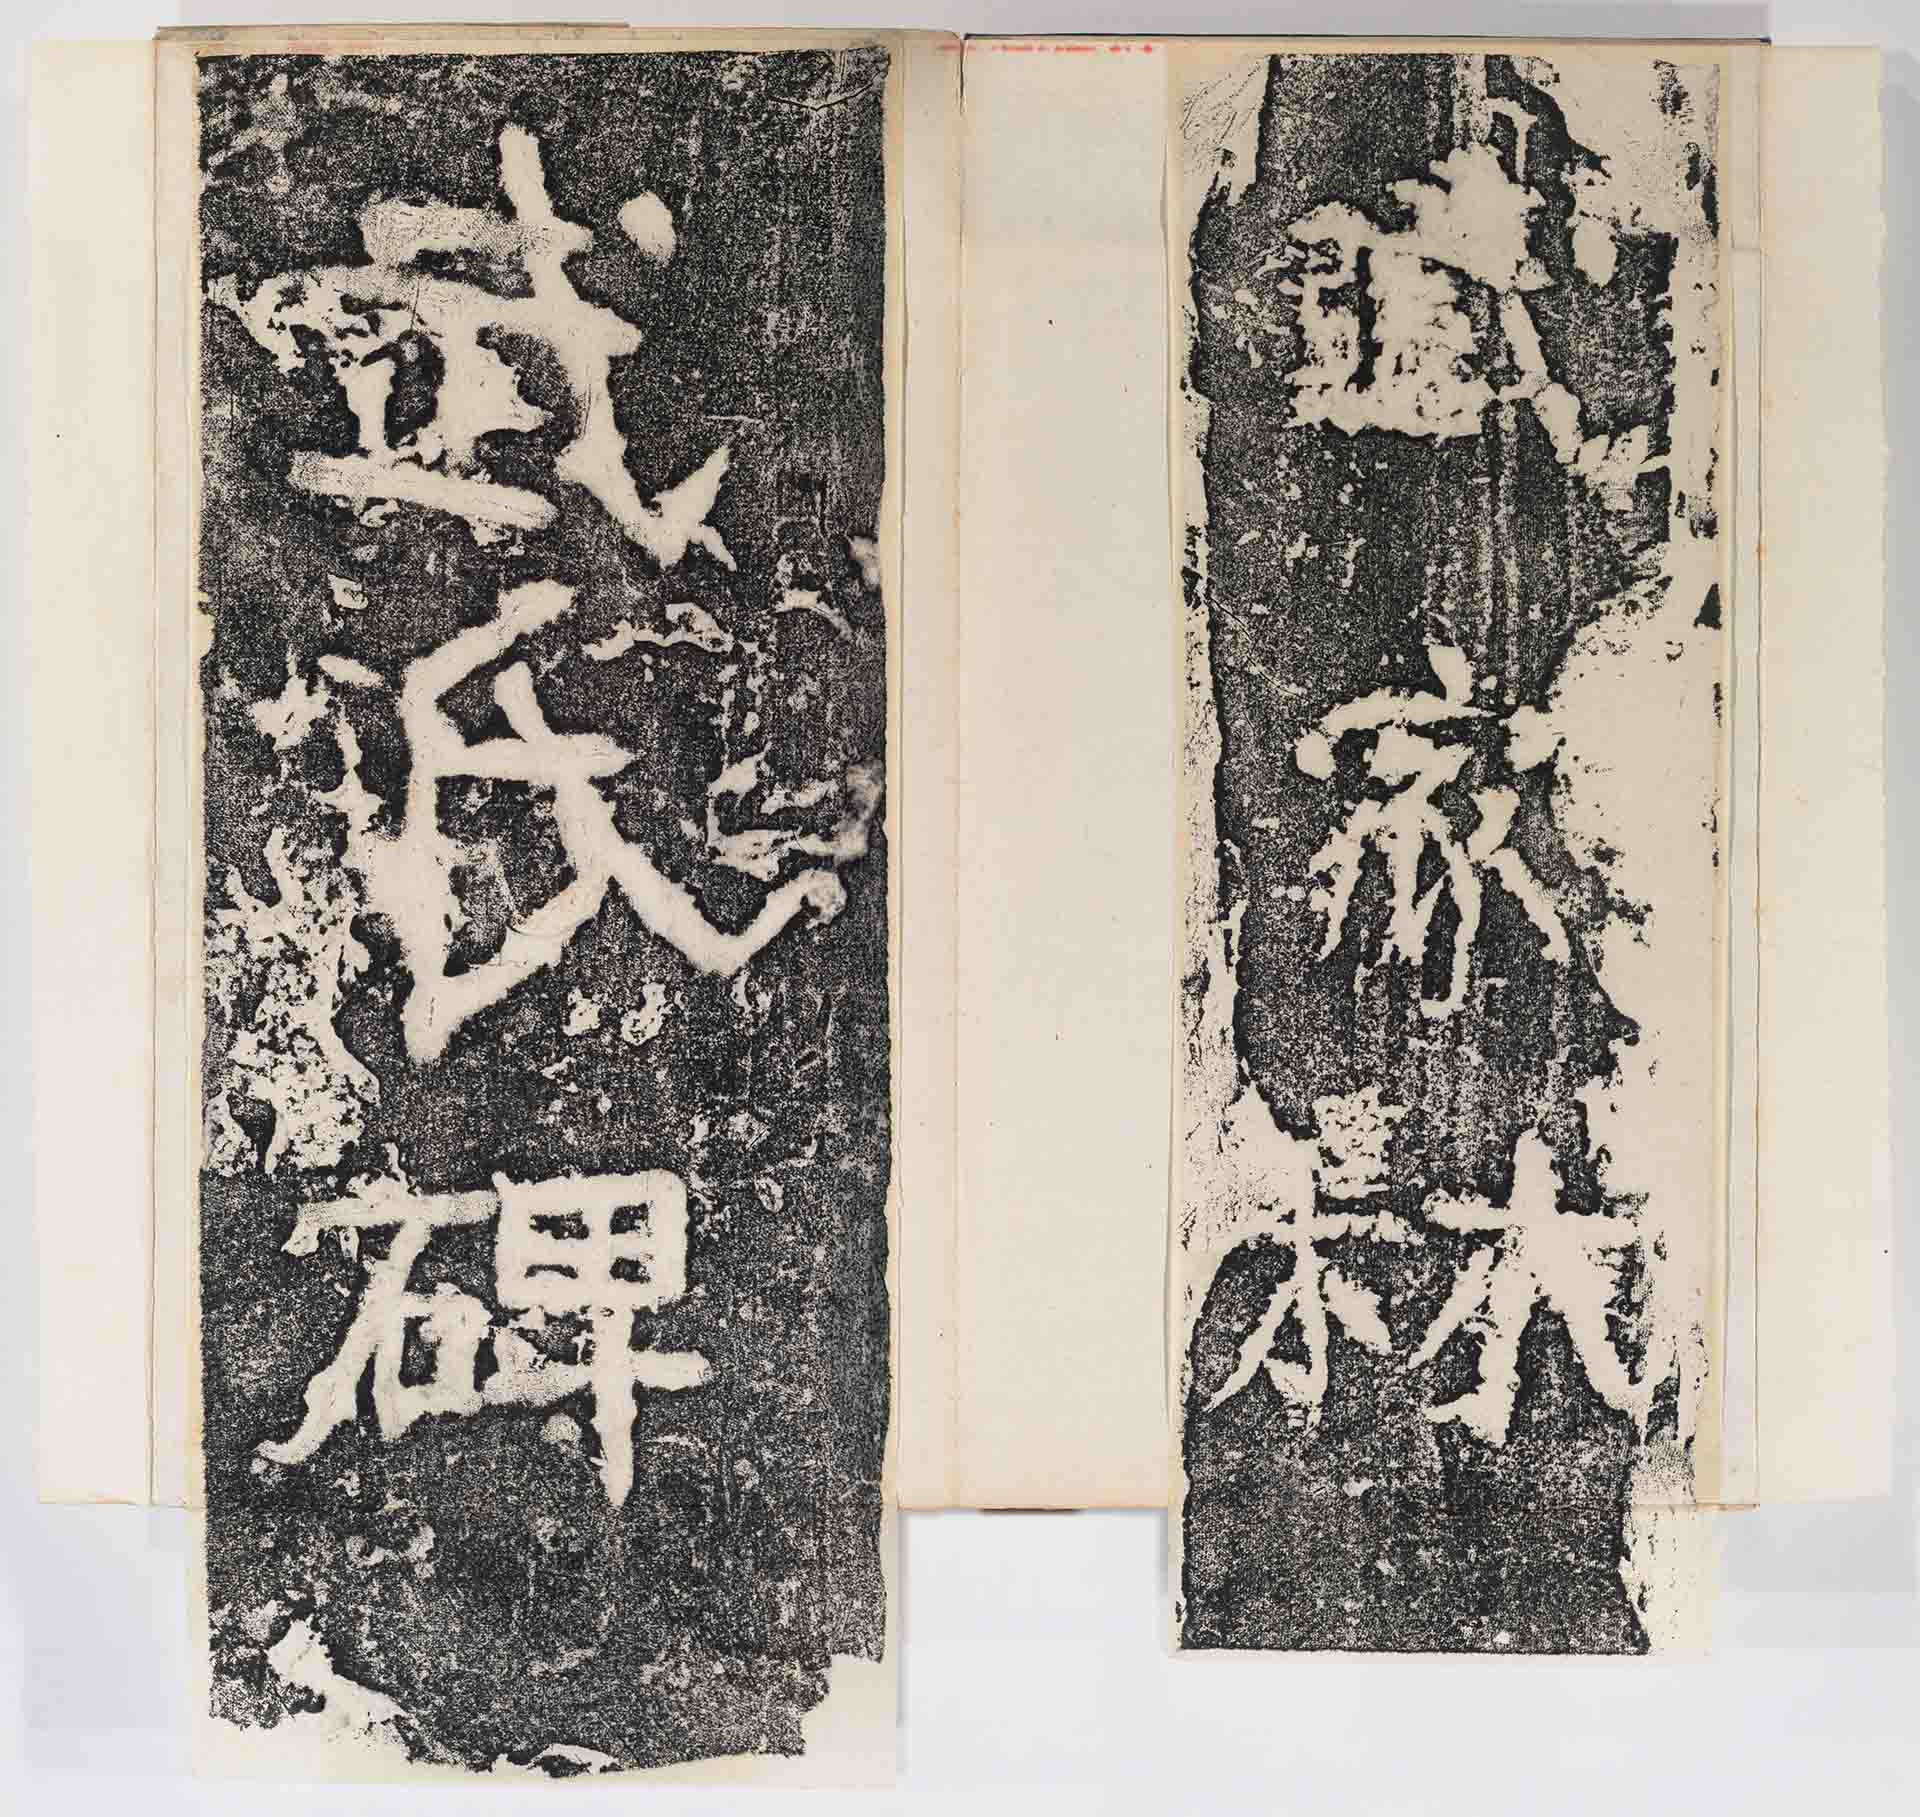 武家林
武氏碑